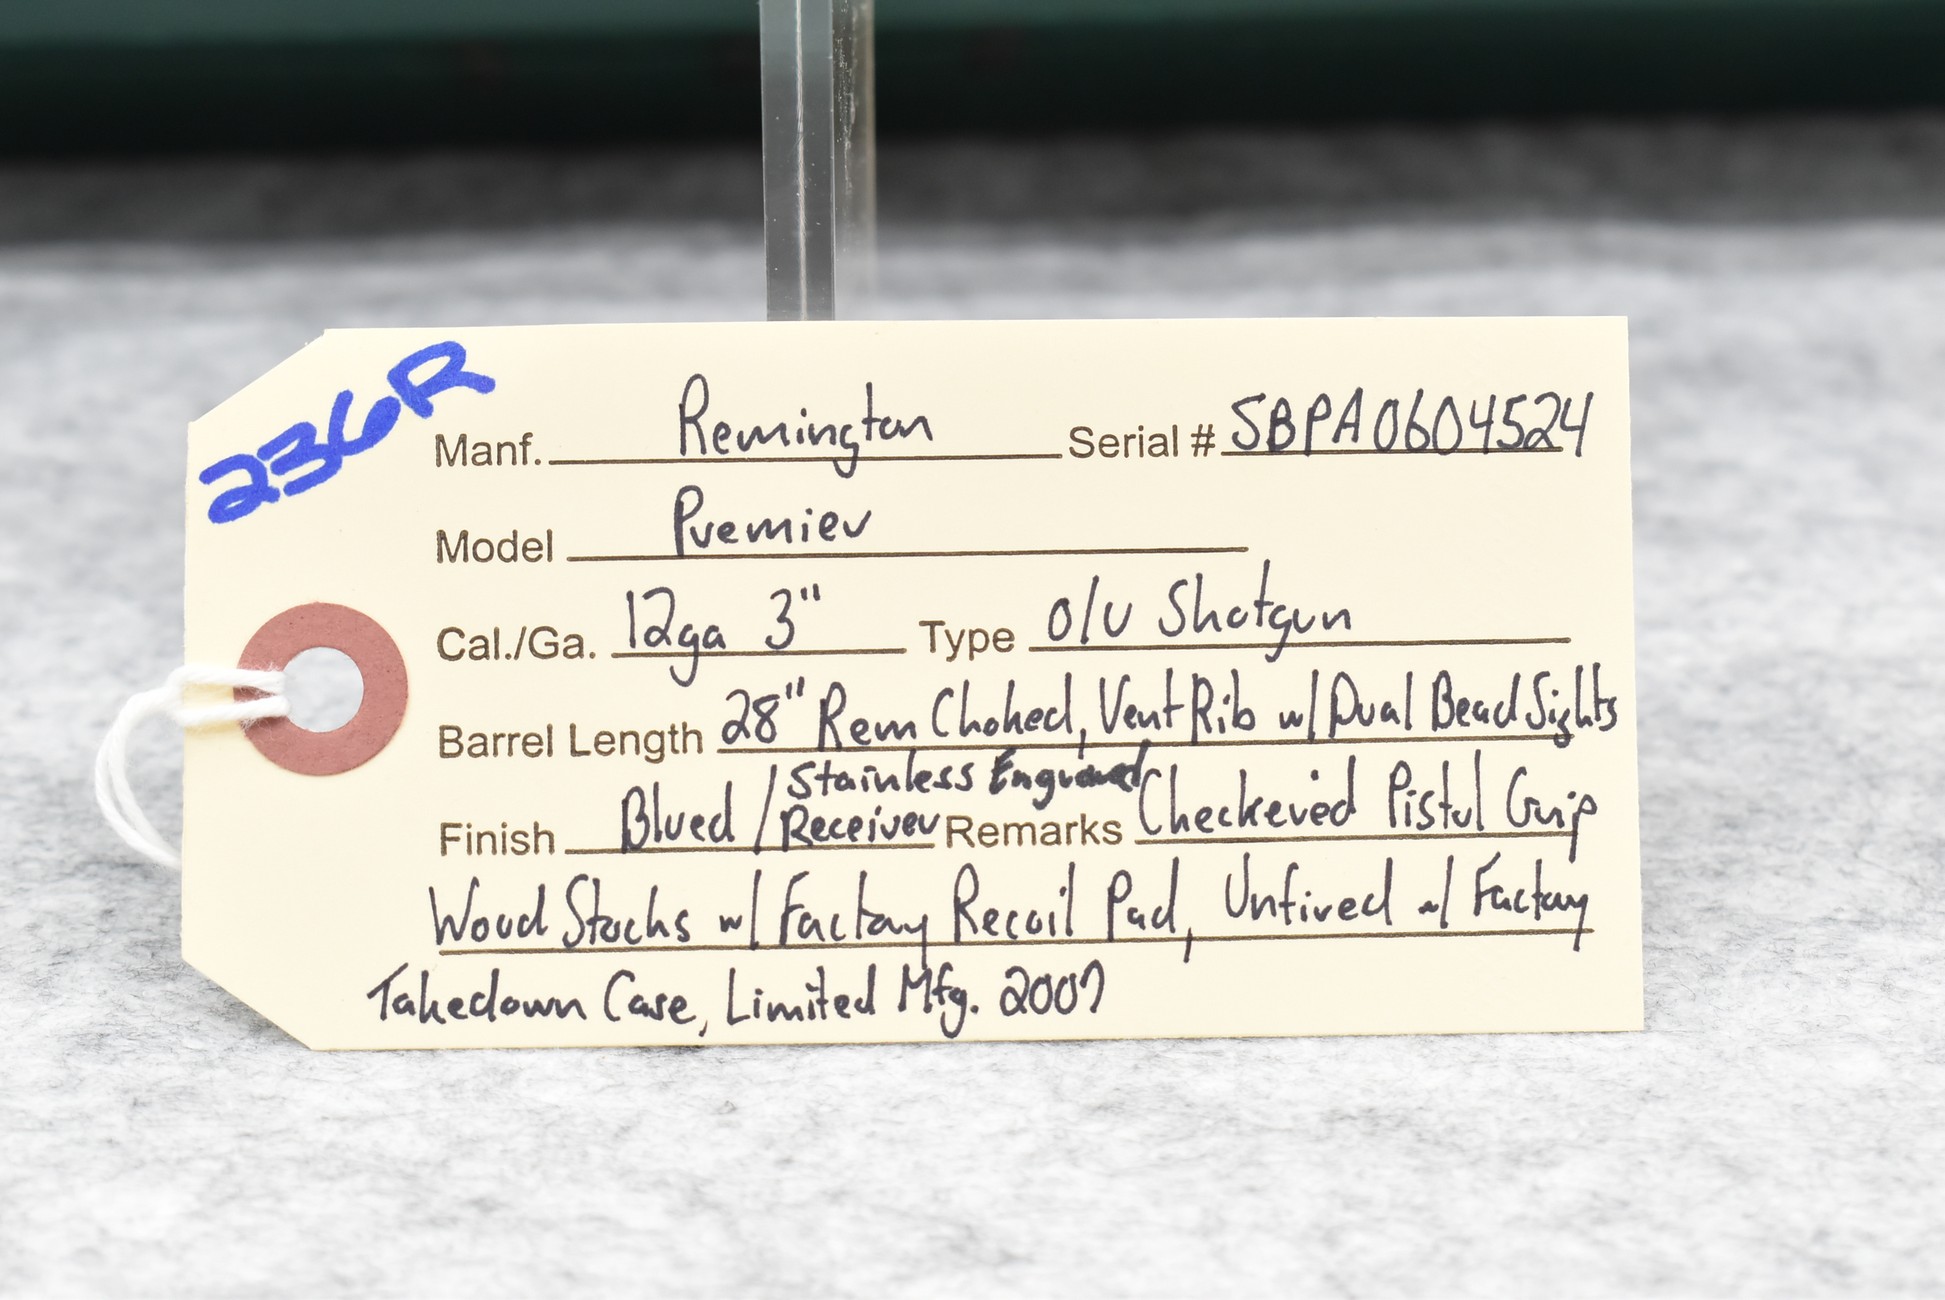 236R
Manf. Remington Serial # SBPA0604524
Model Premier
Cal./Ga. 12ga 3" Type O/U Shotgun
Barrel Length 28" Rem Choked, Vent Rib w/ Dual Bead Sights
Finish Blued / Stainless Engraved Receiver Remarks Checkered Pistol Grip
Wood Stocks w/ Factory Recoil Pad, Unfired w/ Factory
Takedown Case, Limited Mfg. 2007